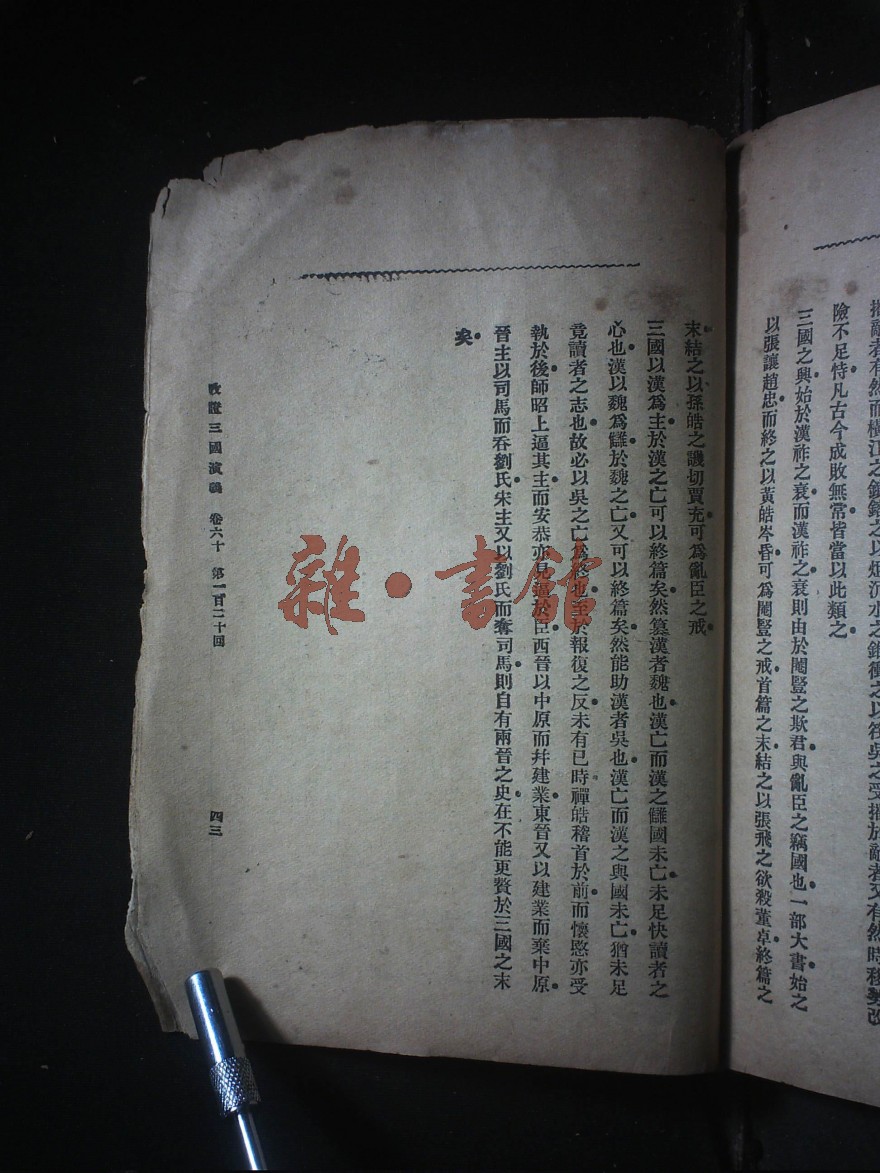 搆敵者有然而橫江之鎖鎔之以炬沉水之錐衝之以筏吳之受搆於敵者又有然時移勢改
險不足恃凡古今成敗無常皆當以此類之
三國之興始於漢祚之衰而漢祚之衰則由於閹豎之欺君與亂臣之竊國也一部大書始之
以張讓趙忠而終之以黃皓岑昏可為閹豎之戒首篇之末結之以張飛之欲殺董卓終篇之
末結之以孫皓之譏切賈充可為亂臣之戒
三國以漢為主於漢之亡可以終篇矣然篡漢者魏也漢亡而漢之讎國未亡未足快讀者之
心也漢以魏為讎於魏之亡又可以終篇矣然能助漢者吳也漢亡而漢之與國未亡猶未足
竟讀者之志也故必以吳之亡為終也至於報復之反未有已時禪皓稽首於前而懷愍亦受
執於後師昭上逼其主而安恭亦見逼於臣西晉以中原而幷建業東晉又以建業而棄中原
晉主以司馬而吞劉氏宋主又以劉氏而奪司馬則自有兩晉之史在不能更贅於三國之末
矣
三國演義 卷六十 第一百二十回
四三
雜·書館